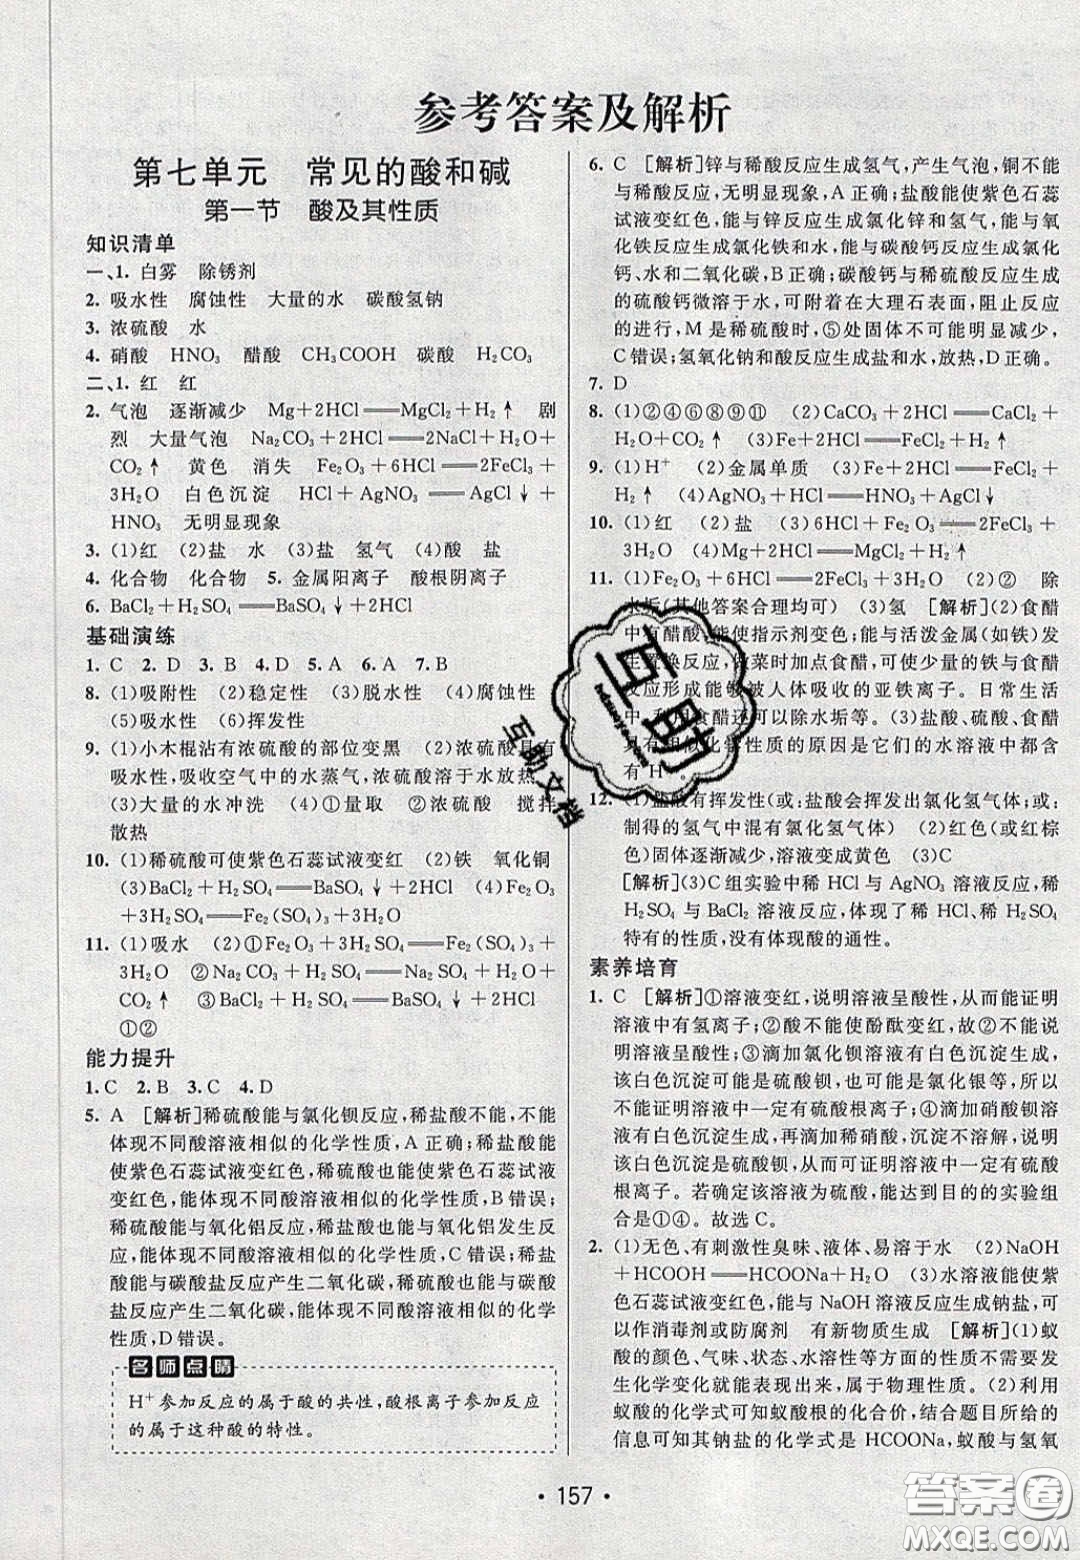 参考答案及解析
第七单元　常见的酸和碱
第一节　酸及其性质
知识清单
一、1. 白雾　除锈剂
2. 吸水性　腐蚀性　大量的水　碳酸氢钠
3. 浓硫酸　水
4. 硝酸　HNO₃　醋酸　CH₃COOH　碳酸　H₂CO₃
二、1. 红　红
2. 气泡　逐渐减少　Mg+2HCl══MgCl₂+H₂↑　剧
烈　大量气泡　Na₂CO₃+2HCl══2NaCl+H₂O+
CO₂↑　黄色　消失　Fe₂O₃+6HCl══2FeCl₃+
3H₂O　白色沉淀　HCl+AgNO₃══AgCl↓+
HNO₃　无明显现象
3. (1)红　(2)盐　水　(3)盐　氢气　(4)酸　盐
4. 化合物　化合物　5. 金属阳离子　酸根阴离子
6. BaCl₂+H₂SO₄══BaSO₄↓+2HCl
基础演练
1. C　2. D　3. B　4. D　5. A　6. A　7. B
8. (1)吸附性　(2)稳定性　(3)脱水性　(4)腐蚀性
(5)吸水性　(6)挥发性
9. (1)小木棍沾有浓硫酸的部位变黑　(2)浓硫酸具有
吸水性,吸收空气中的水蒸气,浓硫酸溶于水放热
(3)大量的水冲洗　(4)①量取　②浓硫酸　搅拌
散热
10. (1)稀硫酸可使紫色石蕊试液变红　(2)铁　氧化铜
(3)BaCl₂+H₂SO₄══BaSO₄↓+2HCl　(4)Fe₂O₃
+3H₂SO₄══Fe₂(SO₄)₃+3H₂O
11. (1)吸水　(2)①Fe₂O₃+3H₂SO₄══Fe₂(SO₄)₃+
3H₂O　②Na₂CO₃+H₂SO₄══Na₂SO₄+H₂O+
CO₂↑　③BaCl₂+H₂SO₄══BaSO₄↓+2HCl
①②
能力提升
1. C　2. B　3. C　4. D
5. A　[解析]稀硫酸能与氯化钡反应,稀盐酸不能,不能
体现不同酸溶液相似的化学性质,A正确;稀盐酸能
使紫色石蕊试液变红色,稀硫酸也能使紫色石蕊试液
变红色,能体现不同酸溶液相似的化学性质,B错误;
稀硫酸能与氧化铝反应,稀盐酸也能与氧化铝发生反
应,能体现不同酸溶液相似的化学性质,C错误;稀盐
酸能与碳酸盐反应产生二氧化碳,稀硫酸也能与碳酸
盐反应产生二氧化碳,能体现不同酸溶液相似的化学
性质,D错误。
名师点睛
H⁺参加反应的属于酸的共性,酸根离子参加反应
的属于这种酸的特性。
6. C　[解析]锌与稀酸反应生成氢气,产生气泡,铜不能
与稀酸反应,无明显现象,A正确;盐酸能使紫色石蕊
试液变红色,能与锌反应生成氯化锌和氢气,能与氧
化铁反应生成氯化铁和水,能与碳酸钙反应生成氯化
钙、水和二氧化碳,B正确;碳酸钙与稀硫酸反应生成
的硫酸钙微溶于水,可附着在大理石表面,阻止反应
的进行,M是稀硫酸时,⑤处固体不可能明显减少,
C错误;氢氧化钠和酸反应生成盐和水,放热,D正确。
7. D
8. (1)②④⑥⑧⑨⑪　(2)CaCO₃+2HCl══CaCl₂+
H₂O+CO₂↑　(3)Fe+2HCl══FeCl₂+H₂↑
9. (1)H⁺　(2)金属单质　(3)Fe+2HCl══FeCl₂+
H₂↑　(4)AgNO₃+HCl══HNO₃+AgCl↓
10. (1)红　(2)盐　(3)6HCl+Fe₂O₃══2FeCl₃+
3H₂O　(4)Mg+2HCl══MgCl₂+H₂↑
11. (1)Fe₂O₃+6HCl══2FeCl₃+3H₂O　(2)②　除
水垢(其他答案合理均可)　(3)氢　[解析](2)食醋
中有醋酸,能使指示剂变色;能与活泼金属(如铁)发
生置换反应,做菜时加点食醋,可使少量的铁与食醋
反应形成能够被人体吸收的亚铁离子。日常生活
中,利用食醋还可以除水垢等。(3)盐酸、硫酸、食醋
具有相似化学性质的原因是它们的水溶液中都含
有H⁺。
12. (1)盐酸有挥发性(或:盐酸会挥发出氯化氢气体;或:
制得的氢气中混有氯化氢气体)　(2)红色(或红棕
色)固体逐渐减少,溶液变成黄色　(3)C
[解析](3)C组实验中稀HCl与AgNO₃溶液反应,稀
H₂SO₄与BaCl₂溶液反应,体现了稀HCl、稀H₂SO₄
特有的性质,没有体现酸的通性。
素养培育
1. C　[解析]①溶液变红,说明溶液呈酸性,从而能证明
溶液中有氢离子;②酸不能使酚酞变红,故②不能
说明溶液呈酸性;③滴加氯化钡溶液有白色沉淀生成,
该白色沉淀可能是硫酸钡,也可能是氯化银等,所以
不能证明溶液中一定有硫酸根离子;④滴加硝酸钡溶
液有白色沉淀生成,再滴加稀硝酸,沉淀不溶解,说明
该白色沉淀是硫酸钡,从而证明溶液中一定有硫酸
根离子。若确定该溶液为硫酸,能达到目的的实验组
合是①④。故选C。
2. (1)无色、有刺激性臭味、液体、易溶于水　(2)NaOH
+HCOOH══HCOONa+H₂O　(3)水溶液能使紫
色石蕊试液变红色,能与NaOH溶液反应生成钠盐,可
以作消毒剂或防腐剂　有新物质生成　[解析](1)蚁
酸的颜色、气味、状态、水溶性等方面的性质不需要
发生化学变化就能表现出来,属于物理性质。(2)利用
蚁酸的化学式可知蚁酸根的化合价,结合题目所给的
信息可知其钠盐的化学式是HCOONa,蚁酸与氢氧
· 157 ·
互助
互助文档
答案圈
MXQE.COM